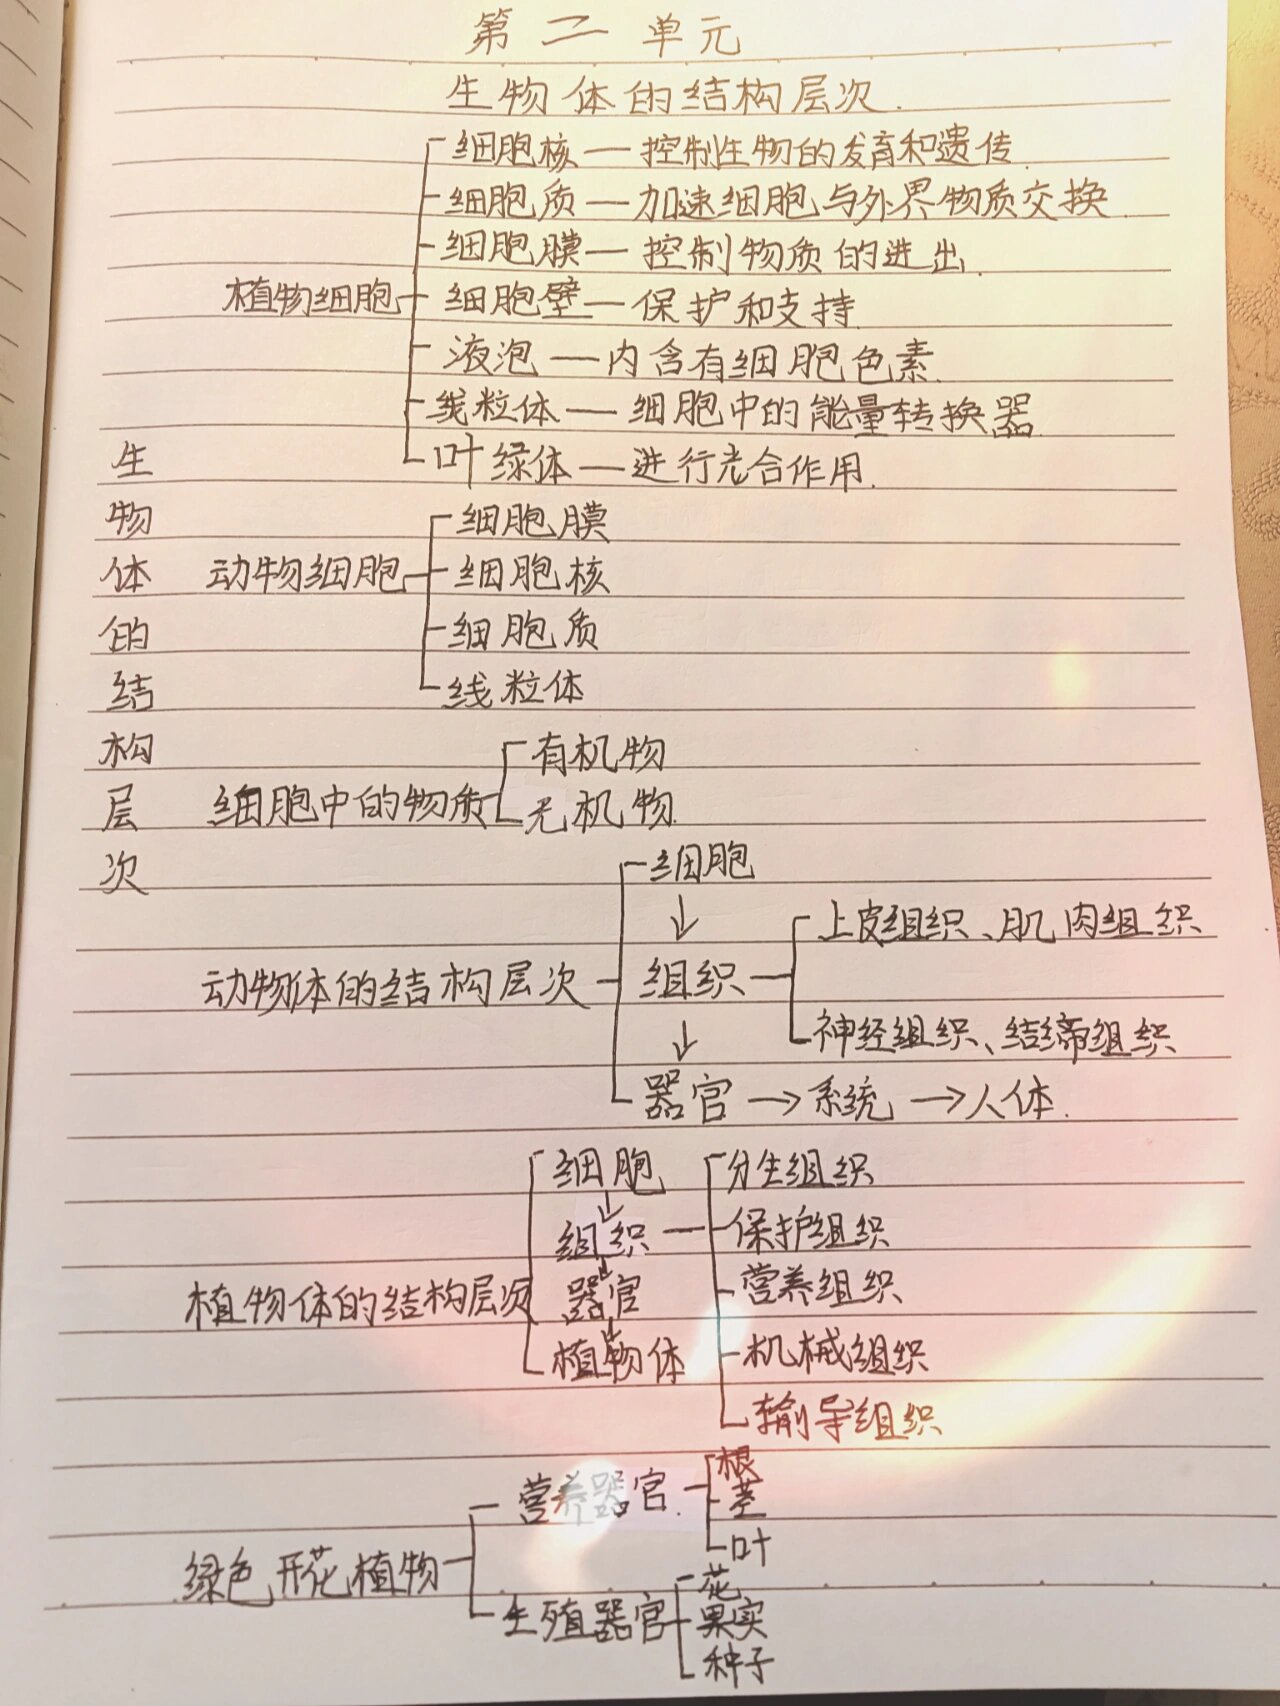 第二单元
生物体的结构层次.
细胞核—控制生物的发育和遗传
细胞质—加速细胞与外界物质交换
细胞膜—控制物质的进出.
植物细胞
细胞壁—保护和支持
液泡—内含有细胞色素.
线粒体—细胞中的能量转换器
叶绿体—进行光合作用.
生物体的结构层次
细胞膜
动物细胞
细胞核
细胞质
线粒体
有机物
细胞中的物质
无机物.
细胞
↓
上皮组织、肌肉组织
动物体的结构层次
组织
神经组织、结缔组织
↓
器官→系统→人体.
细胞
↓
组织
↓
器官
↓
植物体
植物体的结构层次
分生组织
保护组织
营养组织
机械组织
输导组织
营养器官.
根
茎
叶
绿色开花植物
生殖器官
花
果实
种子